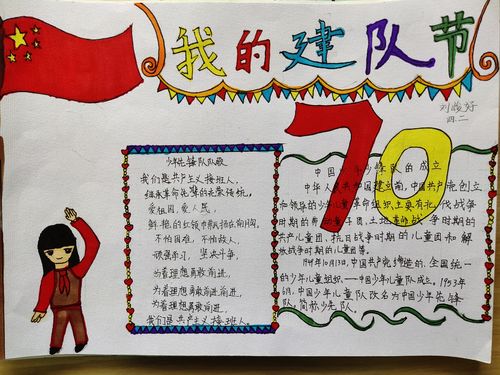 我的建队节
刘俊好
四.二
70
少年先锋队队歌
我们是共产主义接班人,
继承革命先辈的光荣传统,
爱祖国,爱人民,
鲜艳的红领巾飘扬在前胸,
不怕困难,不怕敌人,
顽强学习,坚决斗争,
为着理想勇敢前进,
为着理想勇敢前进前进,
为着理想勇敢前进,
我们是共产主义接班人
中国少年先锋队的成立
中华人民共和国建立前,中国共产党创立
和领导的少年儿童革命组织主要有北伐战争
时期的劳动童子团、土地革命战争时期的
共产儿童团、抗日战争时期的儿童团和解
放战争时期的儿童团等。
1949年10月13日,中国共产党缔造的、全国统一
的少年儿童组织——中国少年儿童队成立。1953年
6月,中国少年儿童队改名为中国少年先锋
队,简称少先队。